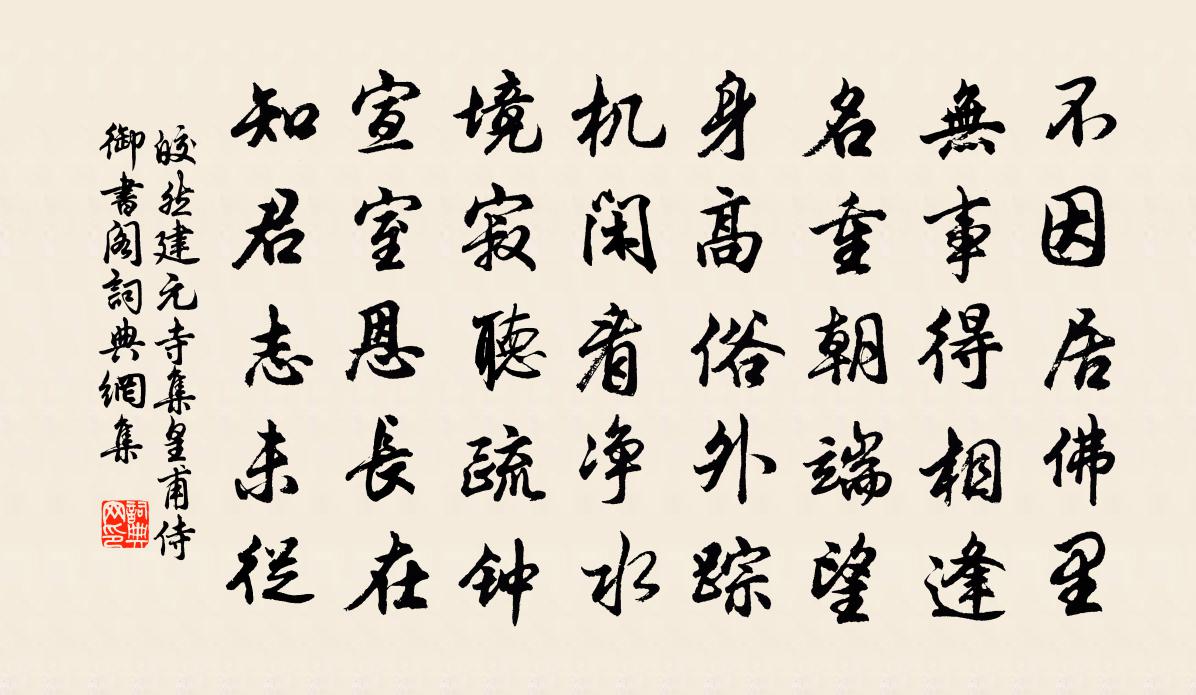 不因居佛里
無事得相逢
名重朝端望
身高俗外踪
机闲看净水
境寂聽疏钟
宣室恩長在
知君志未從
皎然建元寺集皇甫侍
御書阁詞典網集
詞典网印